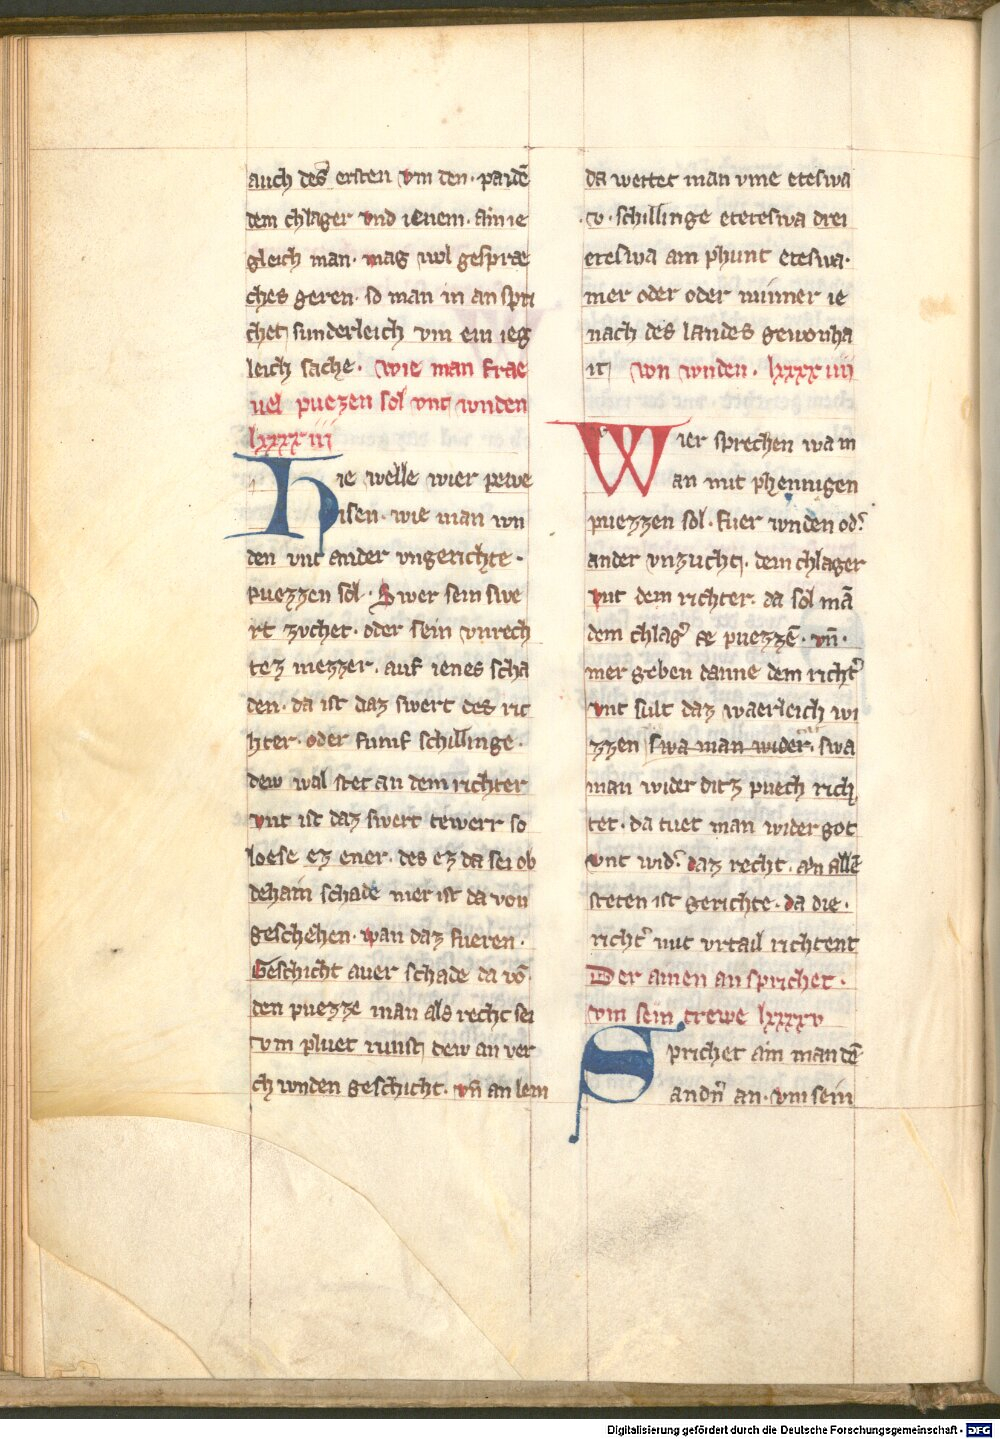 auch des̄ ersten vm den · paidē
dem chlager vnd ienem · ain ie
gleich man · mag wol gespræ
ches geren · so man in an spri
chet sunderleich vm ein ieg
leich sache · wie man frae
uel puezen sol vnt wnden
lxxxxiii
Hie welle wier pewe
isen · wie man wn
den vnt ander vngerichte ·
puezzen sol · Swer sein swe
rt zvchet · oder sein vnrech
tez mezzer · auf ienes scha
den · da ist daz swert des ric
hter · oder fumf schillinge ·
dew wal stet an dem richter
vnt ist daz swert tewerr so
loese ez ener · des ez da sei ob
dehain schade mer ist da von
geschehen · wan daz fueren ·
Geschicht auer schade da vō ·
den puezze man als recht sei
vm pluet runst dew an ver
ch wnden geschicht · vn̄ an lem
da wettet man vme eteswa
·v· schillinge eteteswa drei
eteswa am phunt eteswa ·
mer oder oder minner ie
nach des landes gewonha
it won wnden · lxxxxiiii
Wier sprechen wa m
an mit phennigen
puezzen sol · fuer wnden od᾽
ander vnzucht · dem chlager
vnt dem richter · da sol mā
dem chlag᾽ æ puezzē · vn̄ ·
mer geben danne dem richt᾽
vnt sült daz waerleich wi
zzen swa man wider · swa
man wider ditz puech rich
tet · da tuet man wider got
vnt wid᾽ daz recht · an allē
steten ist gerichte · da die ·
richt᾽ mit vrtail richtent
Der ainen an sprichet ·
vm sein trewe lxxxxv
Sprichet ain man dē
andn̄ an · vm sein
Digitalisierung gefördert durch die Deutsche Forschungsgemeinschaft - DFG